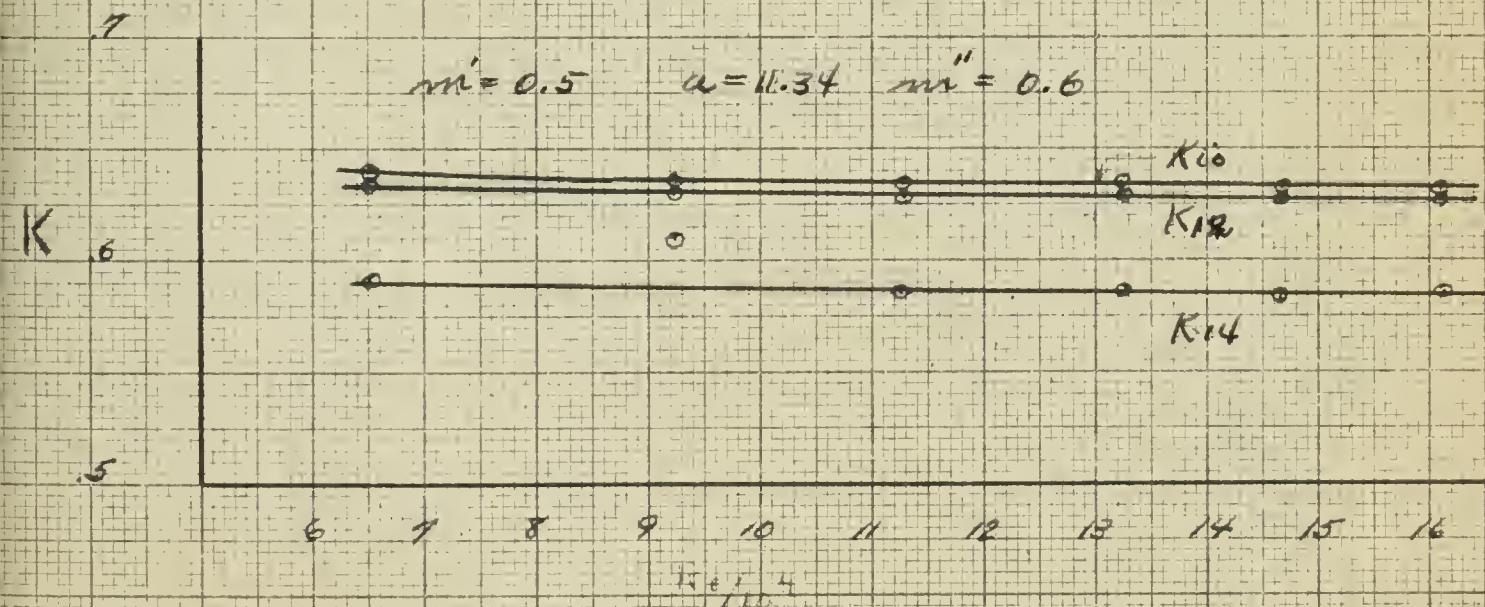 .7
m' = 0.5 a = 11.34 m" = 0.6
K10
K12
K .6
K14
.5
6 7 8 9 10 11 12 13 14 15 16